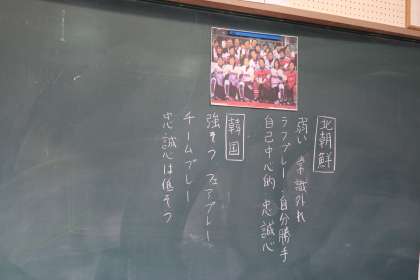 北朝鮮
弱い 常識外れ
ラフプレー 自分勝手
自己中心的 忠誠心
韓国
強そう フェアプレー
チームプレー
忠誠心は低そう